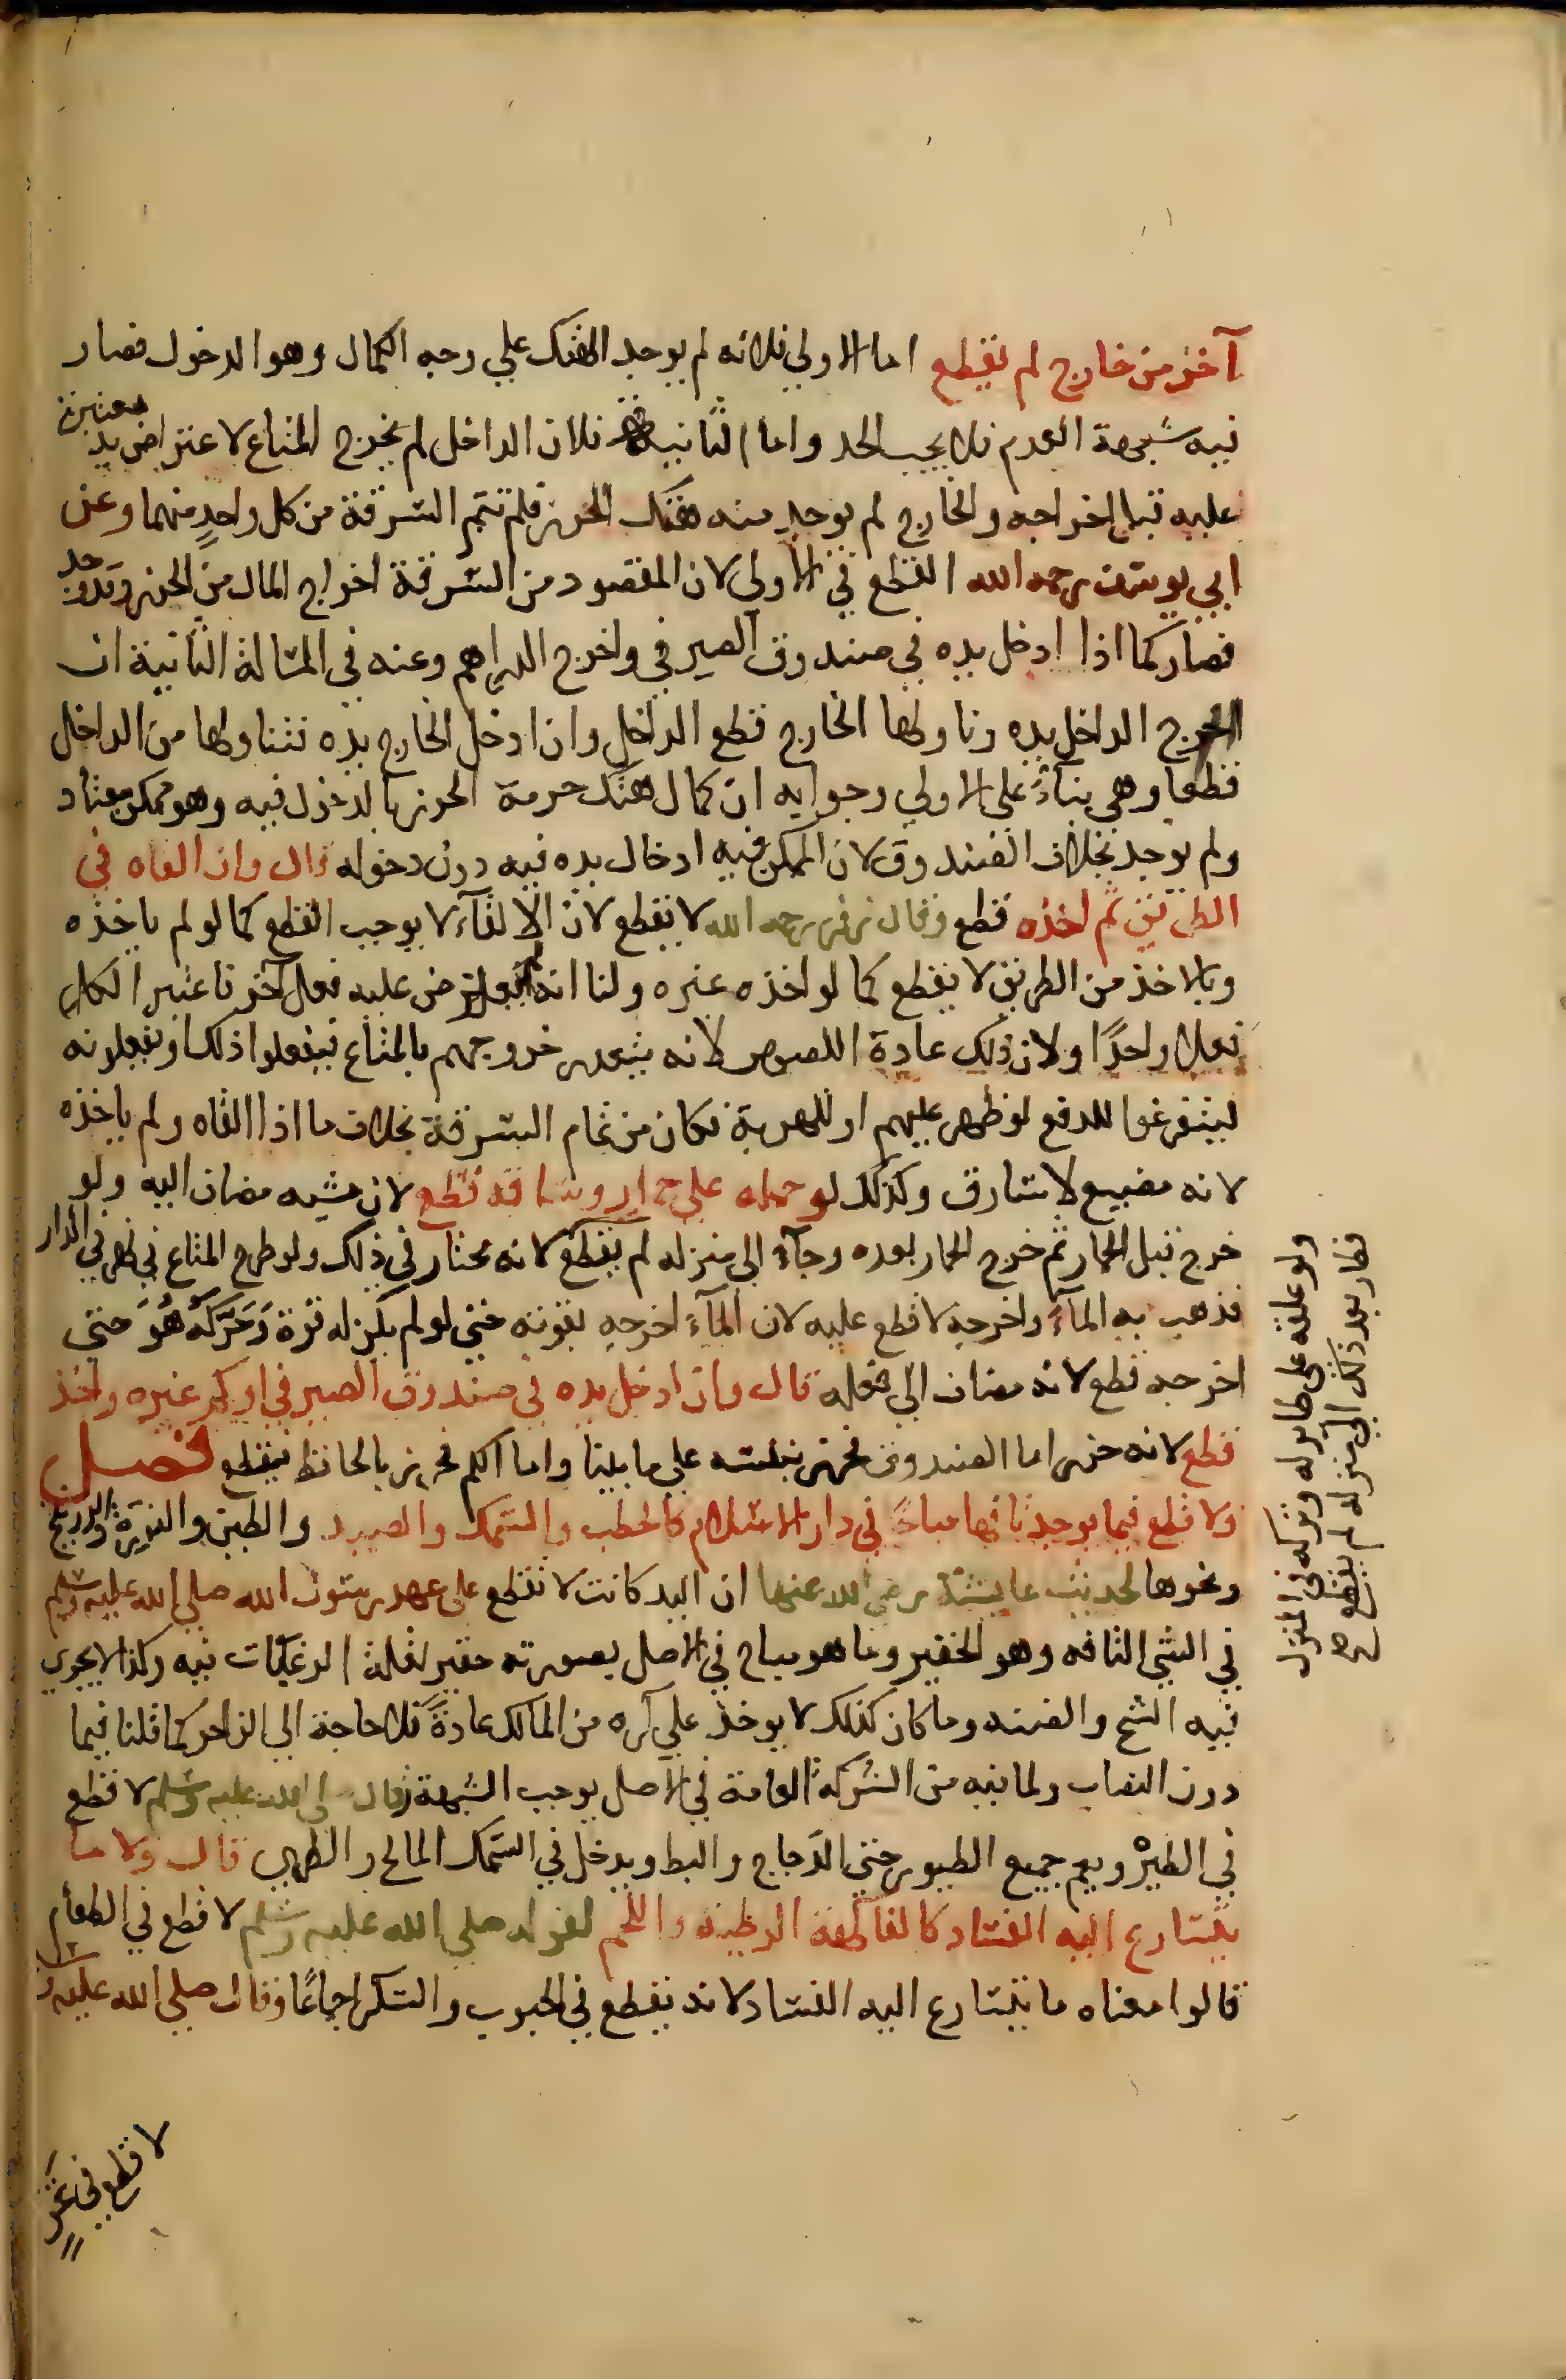 آخر من خارج لم يقطع اما الاولي فلانه لم يوجد الهتك علي وجه الكمال وهو الدخول فصار
فيه شبهة العدم فلا يجب الحد واما الثانية فلان الداخل لم يخرج المتاع لاعتراض يد معتبرة
عليه قبل اخراجه والخارج لم يوجد منه هتك الحرز فلم تتم السرقة من كل واحدٍ منهما وعن
ابي يوسف رحمه الله القطع في الاولي لان المقصود من السرقة اخراج المال من الحرز وقد وجد
فصار كما اذا ادخل يده في صندوق الصيرفي واخرج الدراهم وعنه في المسالة الثانية ان
اخرج الداخل يده وناولها الخارج قطع الداخل وان ادخل الخارج يده فتناولها من الداخل
قطعا وهي بناءً على الاولي وجوابه ان كمال هتك حرمة الحرز بالدخول فيه وهو ممكن معتاد
ولم يوجد بخلاف الصندوق لان الممكن فيه ادخال يده فيه دون دخوله قال وان القاه في
الطريق ثم اخذه قطع وقال زفر رحمه الله لا يقطع لان الالقآء لا يوجب القطع كما لو لم ياخذه
وبالاخذ من الطريق لا يقطع كما لو اخذه غيره ولنا انه لم يعترض عليه فعل آخر فاعتبر الكل
فعلا واحدًا ولان ذلك عادة اللصوص لانه يتعسر خروجهم بالمتاع فيفعلوا ذلك او يفعلونه
ليتفرغوا للدفع لو ظهر عليهم او للهرب فكان من تمام السرقة بخلاف ما اذا القاه ولم ياخذه
لانه مضييع لا سارق وكذلك لو حمله علي حمار وساقه قطع لان مشيه مضاف اليه ولو
خرج قبل الحمار ثم خرج الحمار بعده وجآء الى منزله لم يقطع لانه مختار في ذلك ولو طرح المتاع في نهر في الدار
فذهب به المآء واخرجه لا قطع عليه لان المآء اخرجه بقوته حتى لو لم يكن له قوة وَحَرَّكَهُ هُوَ حتى
اخرجه قطع لانه مضاف الى فعله قال وان ادخل يده في صندوق الصيرفي او كم غيره واخذ
قطع لانه حرز اما الصندوق فحرز بنفسه علي ما بينا واما الكم فحرز بالحافظ فيقطع فصل
ولا قطع فيما يوجد تافها مباحًا في دار الاسلام كالحطب والسمك والصيد والطين والنورة والزرنيخ
ونحوها لحديث عايشة رضي الله عنها ان اليد كانت لا تقطع على عهد رسول الله صلى الله عليه وسلم
في الشيء التافه وهو الحقير وما هو مباح في الاصل بصورته حقير لقلة الرغبات فيه وكذا لا يجري
فيه الشح والضنه وما كان كذلك لا يوخذ علي كره من المالك عادةً فلا حاجة الى الزاجر كما قلنا فيما
دون النصاب ولما فيه من الشركة العامة في الاصل يوجب الشبهة وقال صلى الله عليه وسلم لا قطع
في الطير ويعم جميع الطيور حتى الدجاج والبط ويدخل في السمك المالح والطري قال ولا ما
يتسارع اليه الفساد كالفاكهة الرطبة واللحم لقوله صلى الله عليه وسلم لا قطع في الطعام
قالوا معناه ما يتسارع اليه الفساد لانه يقطع في الحبوب والسكر اجماعًا وقال صلى الله عليه وسلم
لا قطع في ثمر
ولو علقه على طاير له وتركه في المنزل
فطار بعد ذلك الى منزله لم يقطع صح